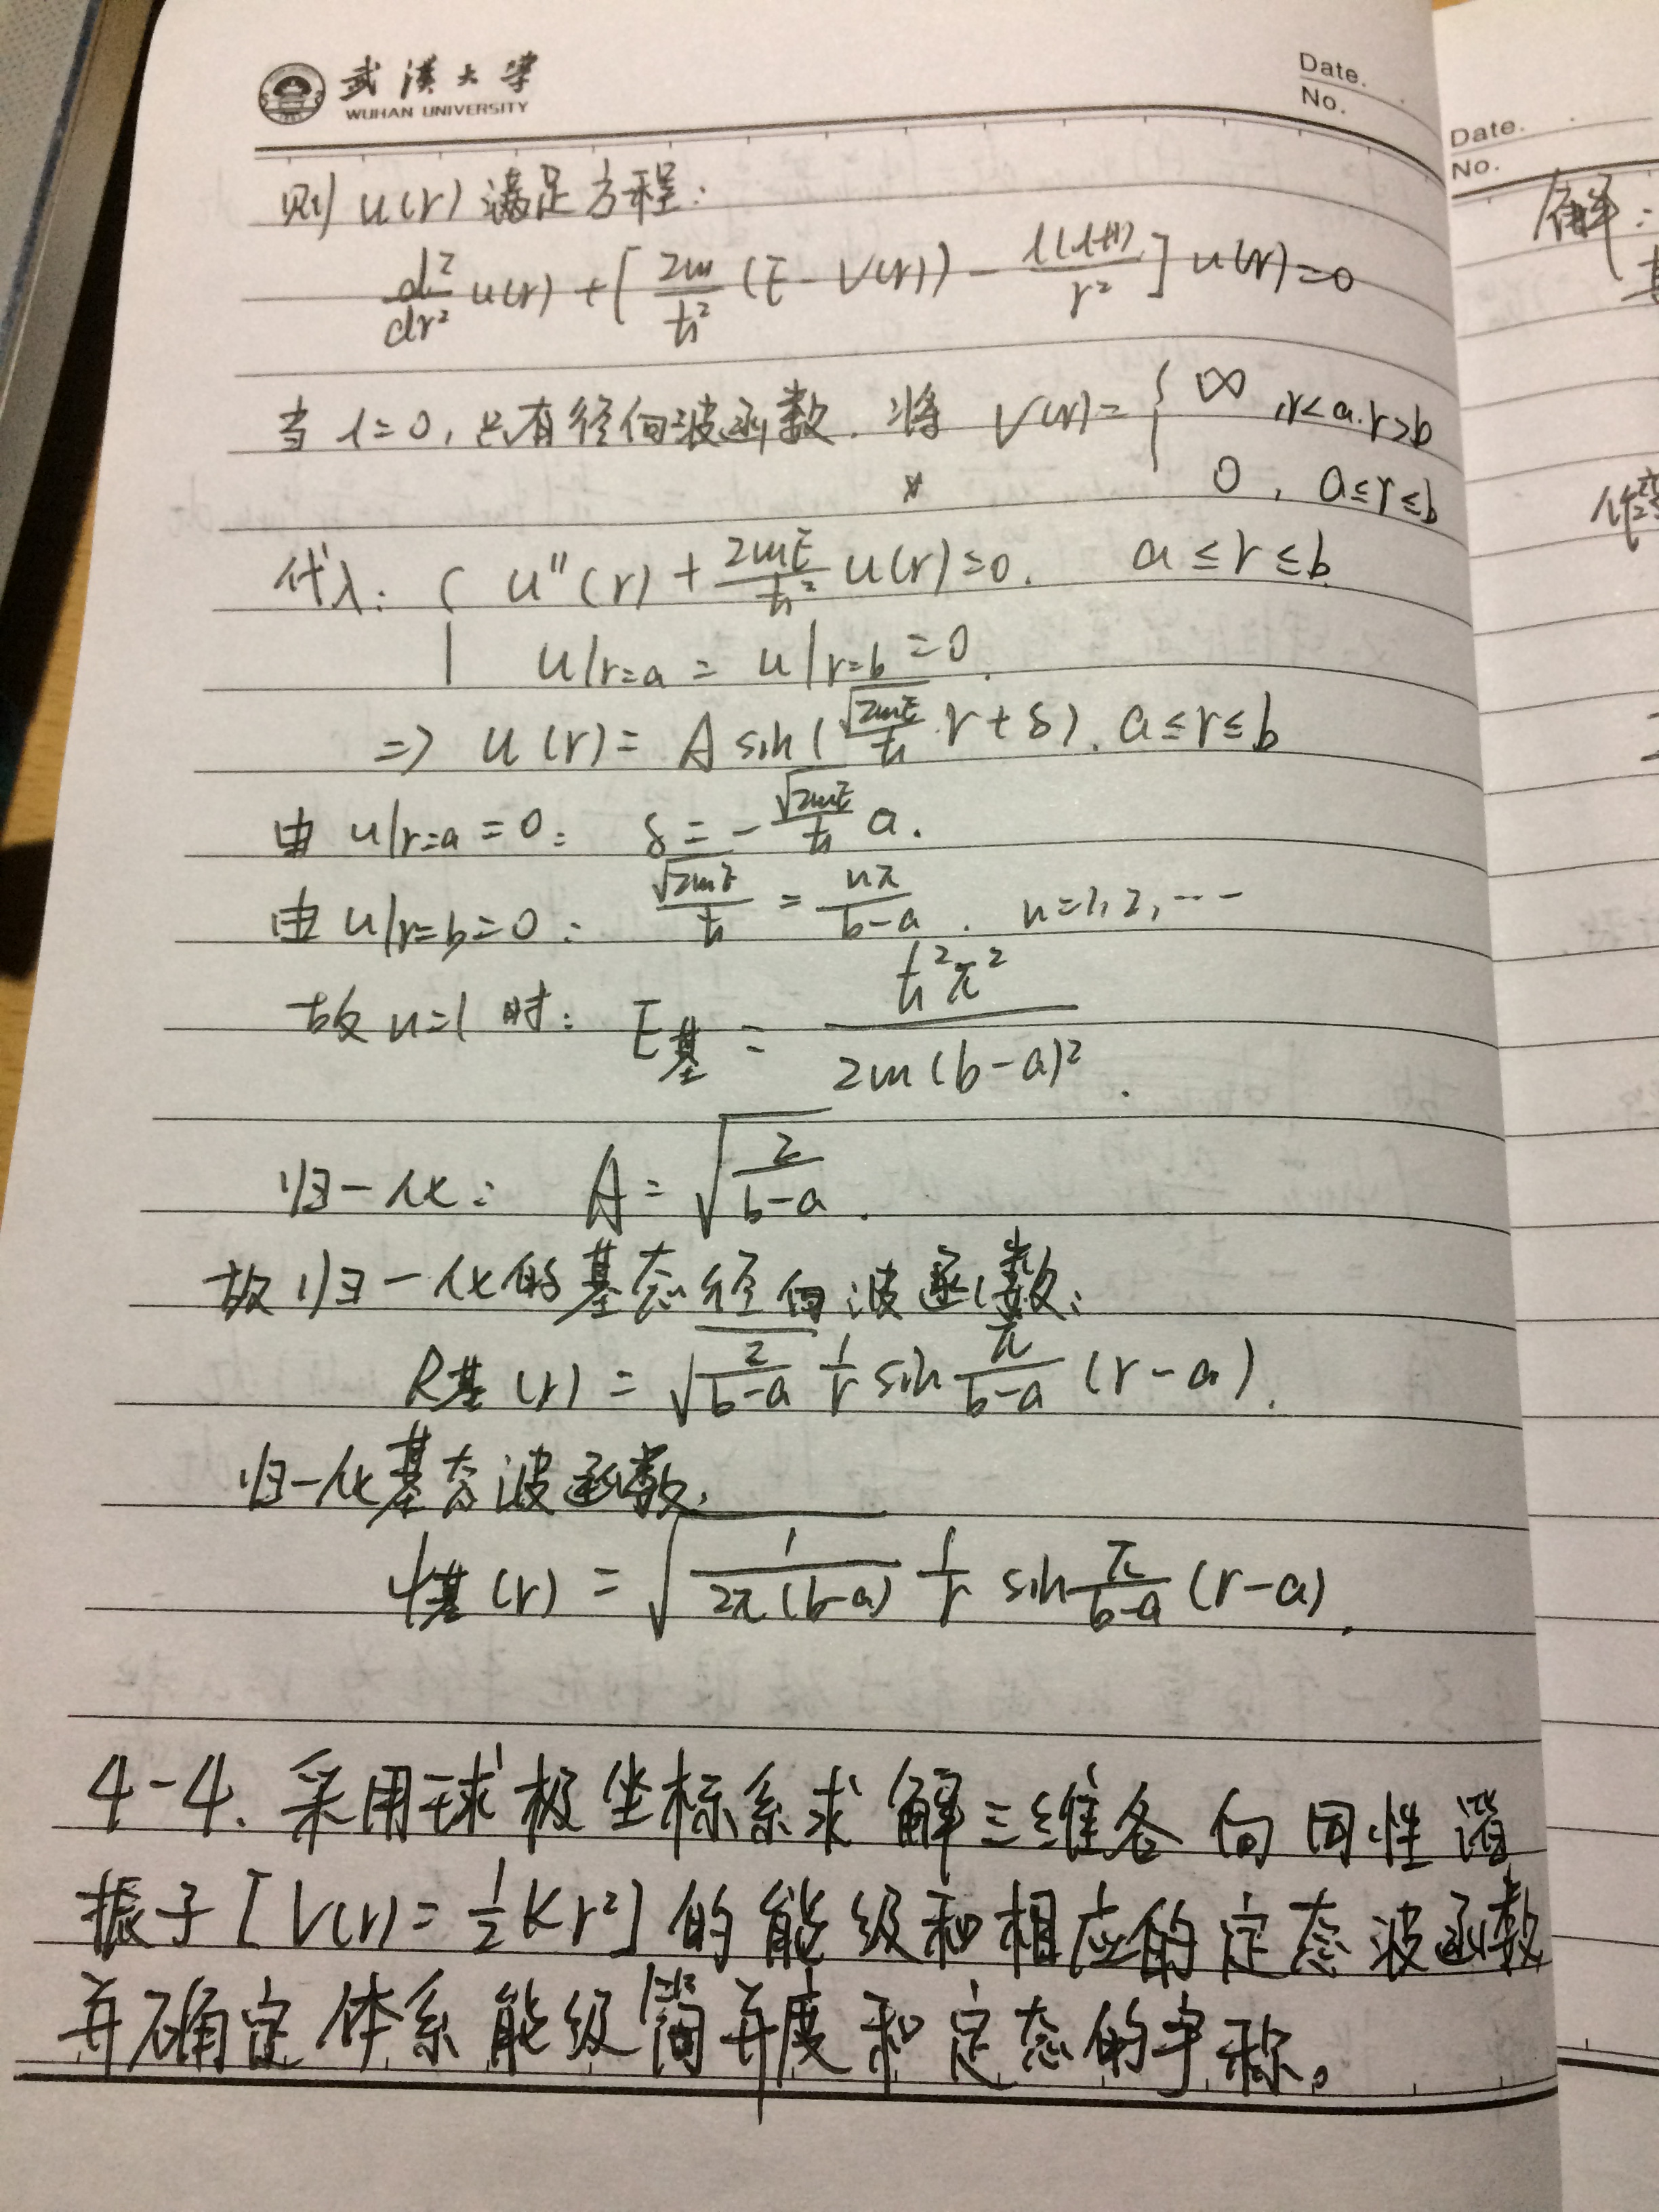 武汉大学
WUHAN UNIVERSITY
Date.
No.
则 u(r) 满足方程:
d²/dr² u(r) + [2m/ħ² (E - V(r)) - l(l+1)/r²] u(r) = 0
当 l=0, 只有径向波函数. 将 V(r) = { ∞, r<a, r>b
0, a≤r≤b
代入: { u''(r) + 2mE/ħ² u(r) = 0. a ≤ r ≤ b
u|r=a = u|r=b = 0.
⇒ u(r) = A sin(√2mE/ħ r + δ). a≤r≤b
由 u|r=a = 0: δ = -√2mE/ħ a.
由 u|r=b = 0: √2mE/ħ = nπ/(b-a). n=1,2,…
故 n=1 时: E基 = ħ²π²/2m(b-a)².
归一化: A = √(2/(b-a)).
故归一化的基态径向波函数:
R基(r) = √(2/(b-a)) 1/r sin π/(b-a) (r-a).
归一化基态波函数:
ψ基(r) = √(1/2π(b-a)) 1/r sin π/(b-a) (r-a).
4-4. 采用球极坐标系求解三维各向同性谐
振子[V(r)=½Kr²]的能级和相应的定态波函数
并确定体系能级简并度和定态的宇称。
Date.
No.
解: